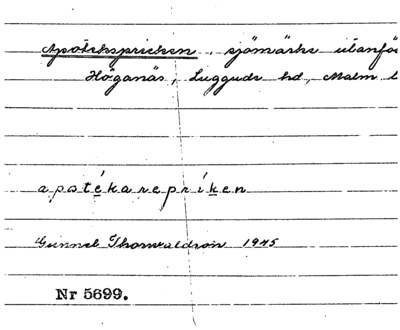 Apotekspricken, sjömärke utanför
Höganäs, Luggude hd, Malm l
apotékarepríken
Gunnel Thorvaldson 1945
Nr 5699.